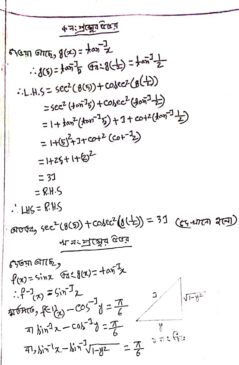 ৪ নং প্রশ্নের উত্তর
দেওয়া আছে, g(x) = tan⁻¹x
∴ g(5) = tan⁻¹5 এবং g(1/2) = tan⁻¹ 1/2
∴ L.H.S = sec²(g(5)) + cosec²(g(1/2))
= sec²(tan⁻¹5) + cosec²(tan⁻¹ 1/2)
= 1 + tan²(tan⁻¹5) + 1 + cot²(tan⁻¹ 1/2)
= 1 + (5)² + 1 + cot²(cot⁻¹2)
= 1 + 25 + 1 + (2)²
= 31
= R.H.S
∴ LHS = R.H.S
অতএব, sec²(g(5)) + cosec²(g(1/2)) = 31 (দেখানো হলো)
নং প্রশ্নের উত্তর
দেওয়া আছে,
f(x) = sinx এবং g(x) = tan⁻¹x
∴ f⁻¹(x) = sin⁻¹x
f⁻¹(x) - cos⁻¹y = π/6
বা, sin⁻¹x - cos⁻¹y = π/6
বা, sin⁻¹x - sin⁻¹√1-y² = π/6
1
√1-y²
y